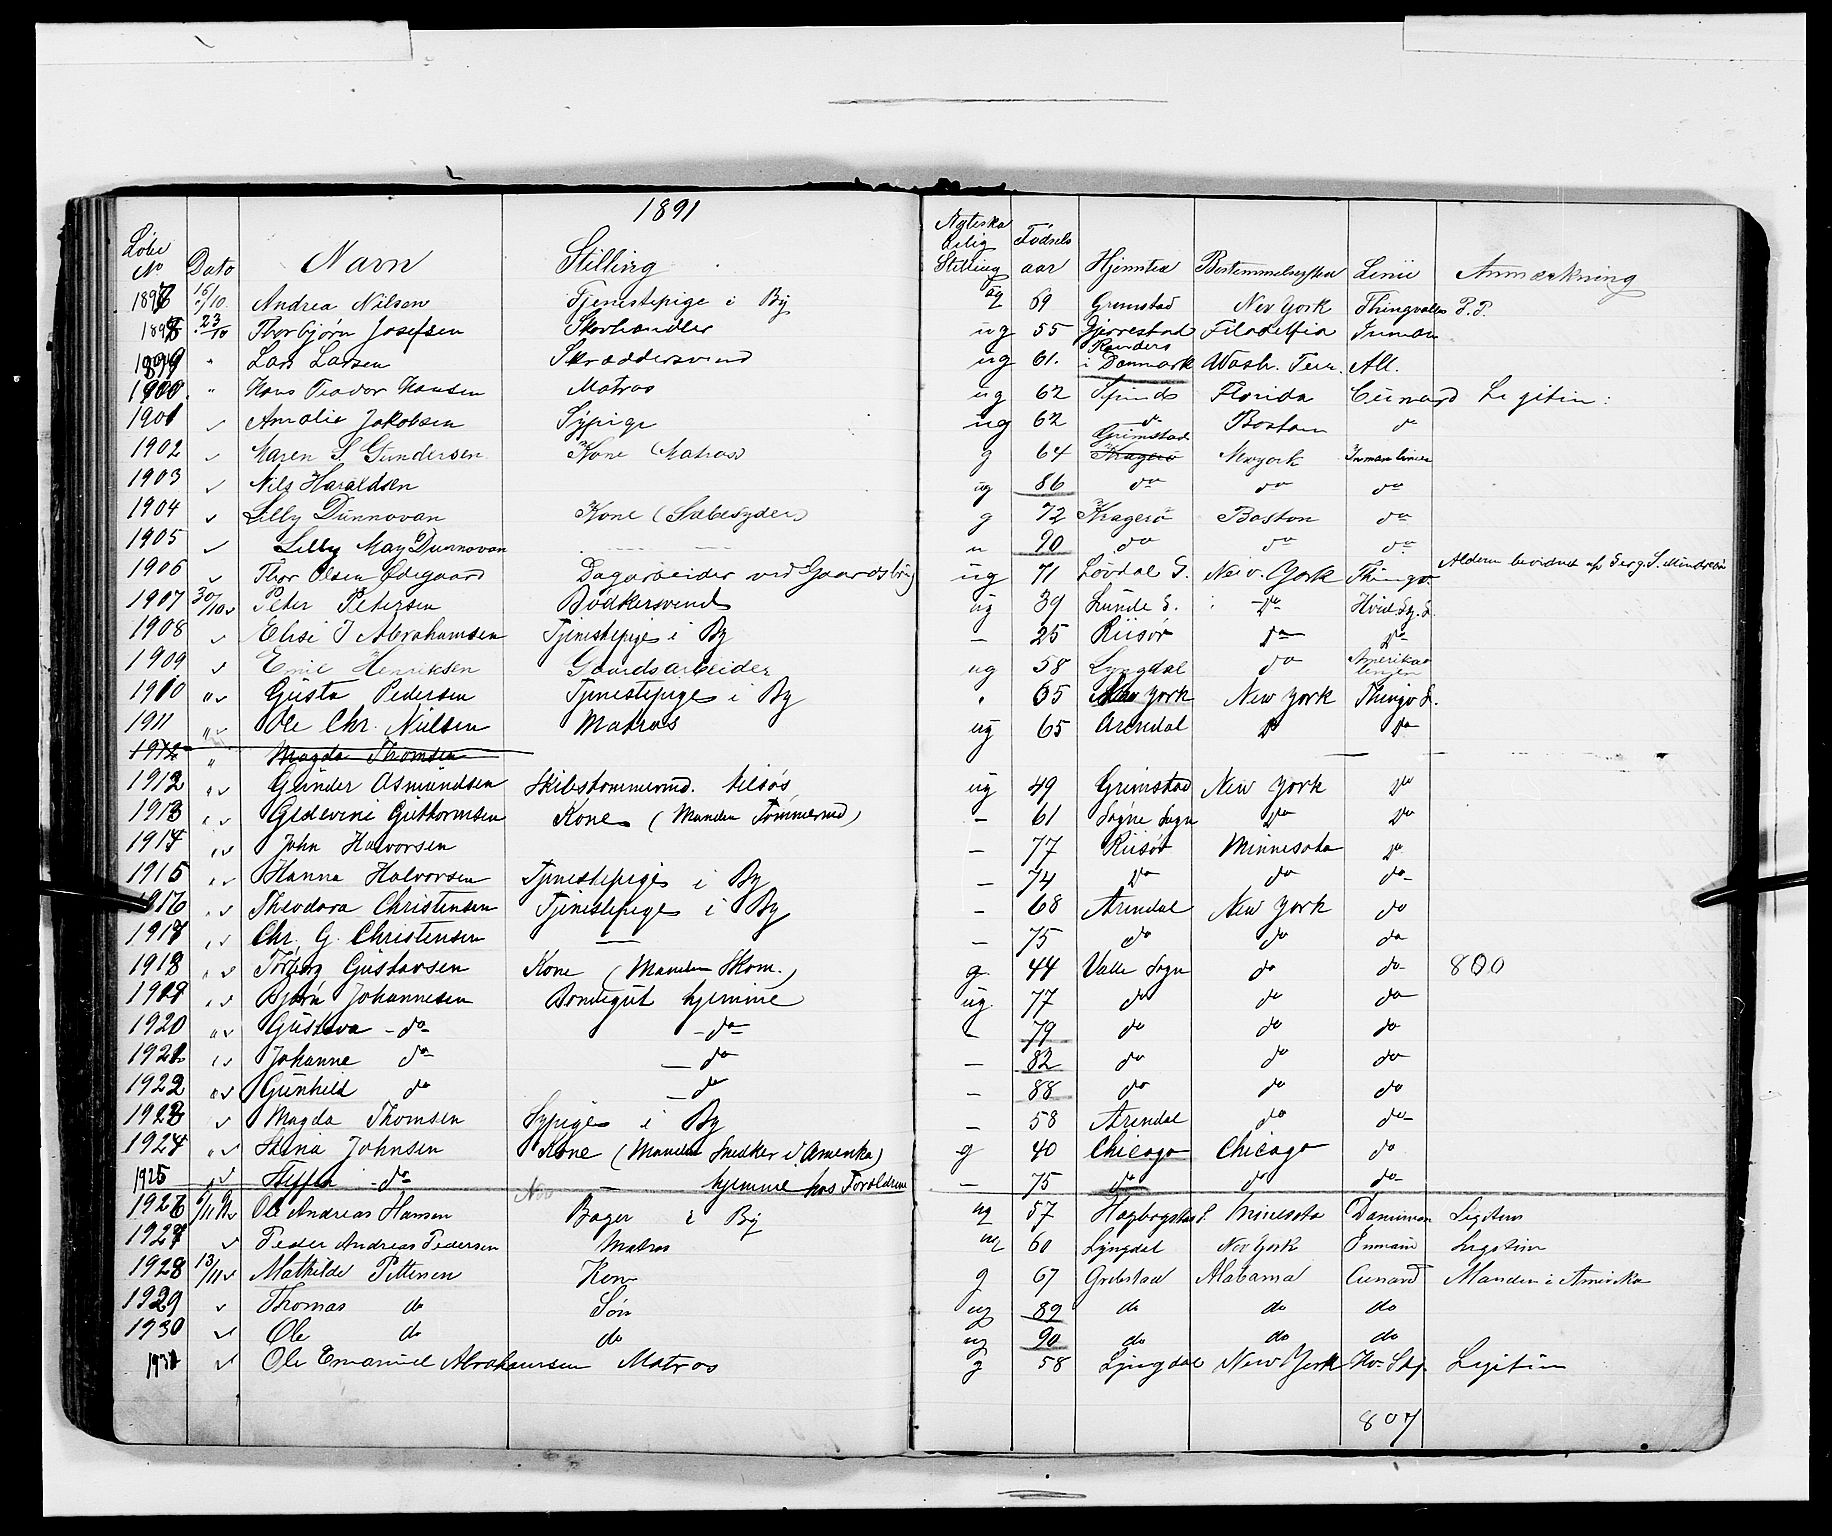 1891
Løbe No Dato Navn Stilling Ægteska belig Stilling Fødsels aar Hjemsted Bestemmelsessted Linie Anmærkning
1897 16/10 Andrea Nilsen Tjenestepige i By ug 69 Grimstad New York Thingvalla P.P.
1898 23/10 Thorbjørn Josefsen Skohandler ug 55 Gjerrestad Filadelfia Inman
1899 " Lars Larsen Skræddersvend ug 61. Randers i Danmark Wash. Terr. All.
1900 " Hans Teodor Hansen Matros ug 62 Spinds Florida Cunard Legitim:
1901 Amalie Jakobsen Sypige ug 62 do Boston do
1902 Maren S. Gundersen Kone (Matros) g 64 Grimstad Kragerø Newyork Inman linien
1903 Nils Haraldsen ug 86 do do do
1904 Lilly Dunnovan Kone (Sæbesyder) g 72 Kragerø Boston do
1905 Lilly May Dunnovan u 90 do do do
1906 Thor Olsen Ødegaard Dagarbeider ved Gaardsbrug ug 71 Løvdal S. New. York Thingv. Alderen bevidnet af
1907 30/10 Peter Petersen Bødkersvend ug 39 Lunde S. do Hvid
1908 Elisi J Abrahamsen Tjenestepige i By — 25 Riisør do do
1909 Emil Henriksen Gaardsarbeider ug 58 Lyngdal do Amerika linjen
1910 " Gusta Pedersen Tjenestepige i By " 65 New York New York Thingv L.
1911 " Ole Chr. Nielsen Matros ug 65 Arendal do do
1912 " Magda Thomsen
1912 " Gunder Asmundsen Skibstømmermd. tilsøs ug 49 Grimstad New York do
1913 " Gedevine Guttormsen Kone (Manden Tømmermd) — 61 Søgne Sogn do do
1914 " John Halvorsen — 77 Riisør Minnesota do
1915 " Hanna Halvorsen Tjenestepige i By — 74 do do do
1916 " Theodora Christensen Tjenestepige i By — 68 Arendal New York do
1917 " Chr. G. Christensen — — 75 do do do
1918 " Torborg Gustavsen Kone (Manden Skom.) g 44 Valle Sogn do do 800
1919 " Bjørn Johannesen Bondegut hjemme ug. 77 do do do
1920 " Gustava - do - do — 79 do do do
1921 " Johanne do — do — 82 do do do
1922 " Gunhild do — do — 88 do do do
1923 Magda Thomsen Sypige i By — 58 Arendal do do
1924 " Stina Johnsen Kone (Manden Snedker i Amerika) g 40 Chicago Chicago do
1925 " Steffen - do — hjemme hos Forældrene — 75 do do do
1926 Ole Andreas Hansen Bager i By ug 57 Hægbostad S. Minesota Dominion Legitim
1927 Peder Andreas Pedersen Matros ug 60 Lyngdal New York Inman Legitim
1928 13/11 Mathilde Pettersen Kone g 67 Grebstad Alabama Cunard Manden i Amerika
1929 Thomas do Søn ug 89 do do do
1930 Ole do do ug 90 do do do
1931 Ole Emanuel Abrahamsen Matros g 58 Lyngdal New York Hv. Stj. Legitim
807